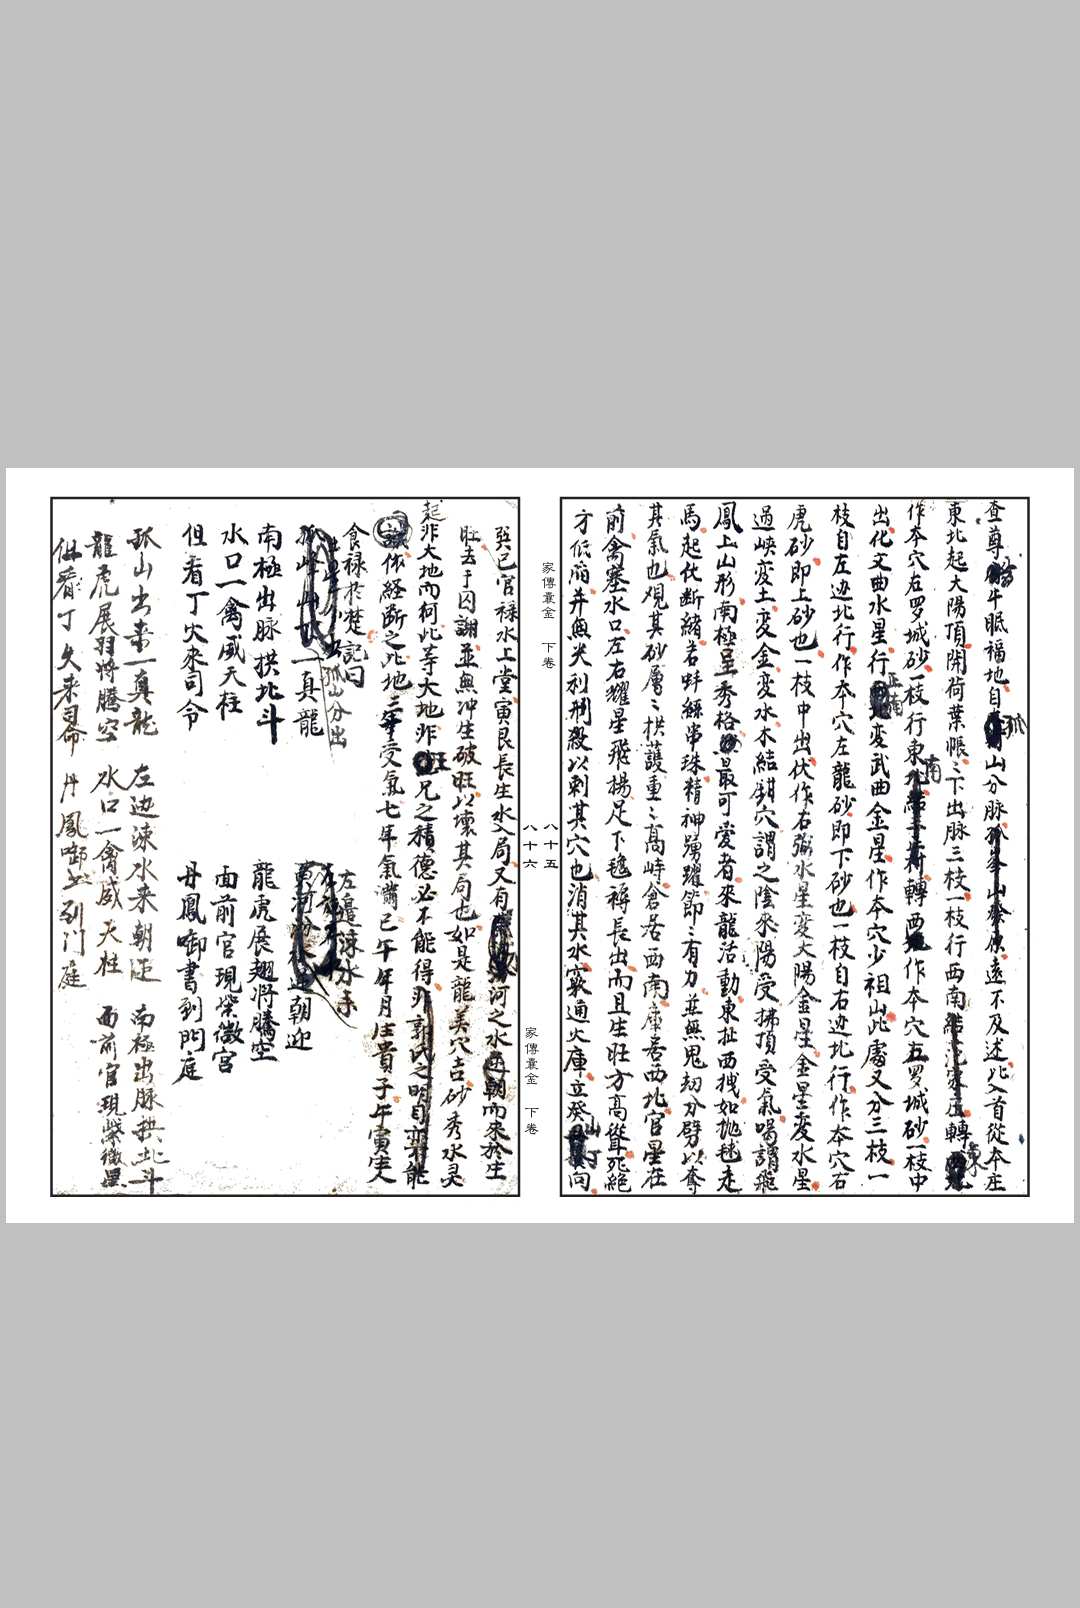 查尊翁牛眠福地自孤山分脉孤峯山發原遠不及述此入首從本庄
東北起太陽頂開荷葉帳〻下出脉三枝一枝行西南轉東
作本穴右罗城砂一枝行東南轉西作本穴左罗城砂一枝中
出化文曲水星行正南変武曲金星作本穴少祖山此處又分三枝一
枝自左边北行作本穴左龍砂即下砂也一枝自右边北行作本穴右
虎砂即上砂也一枝中出伏作右弼水星変太陽金星金星変水星
過峽変土変金変水木結鉗穴謂之陰來陽受拂頂受氣喝謂飛
鳳上山形南極呈秀格最可愛者來龍活動東扯西拽如抛毬走
馬起伏断續若蛛絲串珠精神踴躍節〻有力並無鬼刧分劈以奪
其氣也观其砂層〻栱護重〻高峙倉居西南庫居西北官星在
前禽塞水口左右耀星飛揚足下毯褥長出而且生旺方高聳死絕
方低陷并無尖利刑殺以刺其穴也消其水竅通火庫立癸山丁向
家傳囊金 下卷
八十五
八十六
家傳囊金 下卷
巽巳官禄水上堂寅艮長生水入局又有河之水朝而來於生
旺去于囚謝並無冲生破旺以壞其局也如是龍美穴吉砂秀水灵
起非大地而何此等大地非旺兄之積德必不能得非郭氏之明目亦不能
識依経断之此地三年受氣七年氣滿巳午年月生貴子午寅年
食禄於楚記曰
孤山分出一真龍 左邊涑水朝迎
南極出脉拱北斗 龍虎展翅將騰空
水口一禽威天柱 面前官現紫微宫
但看丁火來司令 丹鳳啣書到門庭
孤山出來一真龍 左边涑水来朝迎 南極出脉拱北斗
龍虎展羽將騰空 水口一禽威天柱 面前官現紫微星
但看丁火来司命 丹鳳啣书到门庭